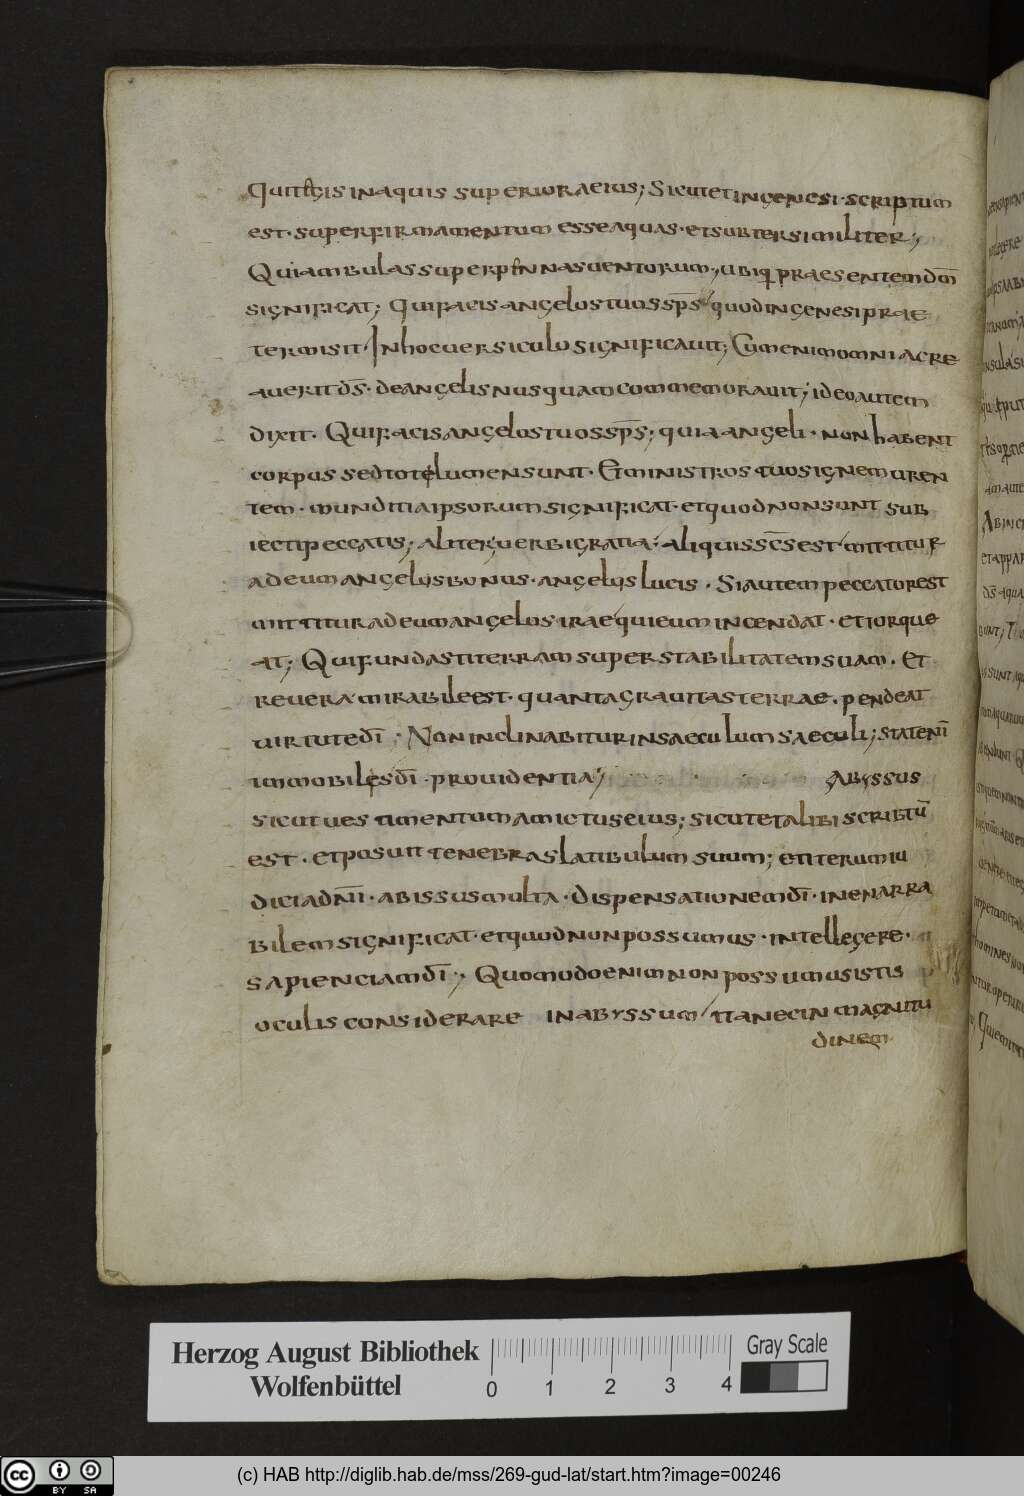 Qui tegis in aquis superiora eius; Sicut et in genesi · scriptum
est · super firmamentum esse aquas · et subter similiter;
Qui ambulas super pinnas uentorum; ubiq praesentem dm̄
significat; Qui facis angelos tuos sps̄ quod in genesi prae
termisit · In hoc uersiculo significauit; Cum enim omnia cre
auerit ds̄ · de angelis nusquam commemorauit; ideo autem
dixit · Qui facis angelos tuos sps̄; quia angeli · non habent
corpus sed tote lumen sunt · Et ministros tuos ignem uren
tem · munditia ipsorum significat · et quod non sunt sub
iecti peccatis; aliter; uerbi gratia · aliquis sc̄s est mittitur
ad eum angelus bonus · angelus lucis · Si autem peccator est
mittitur ad eum angelos irae qui eum incendat · et torque
at; Qui fundasti terram super stabilitatem suam · Et
reuera mirabile est · quanta grauitas terrae · pendeat
uirtute dī · Non inclinabitur in saeculum saeculi; stat enī
immobiles dī · prouidentia; Abyssus
sicut uestimentum amictus eius; sicut et alibi scribtū
est · et posuit tenebras latibulum suum; et iterum iu
dicia dn̄i · abissus multa · dispensationem dī · inenarra
bilem significat · et quod non possumus · intellegere ·
sapienciam dī · Quomodo enim non possumus istis
oculis considerare in abyssum ita nec in magnitu
dinem
Herzog August Bibliothek
Wolfenbüttel
0 1 2 3 4
Gray Scale
cc BY SA
(c) HAB http://diglib.hab.de/mss/269-gud-lat/start.htm?image=00246